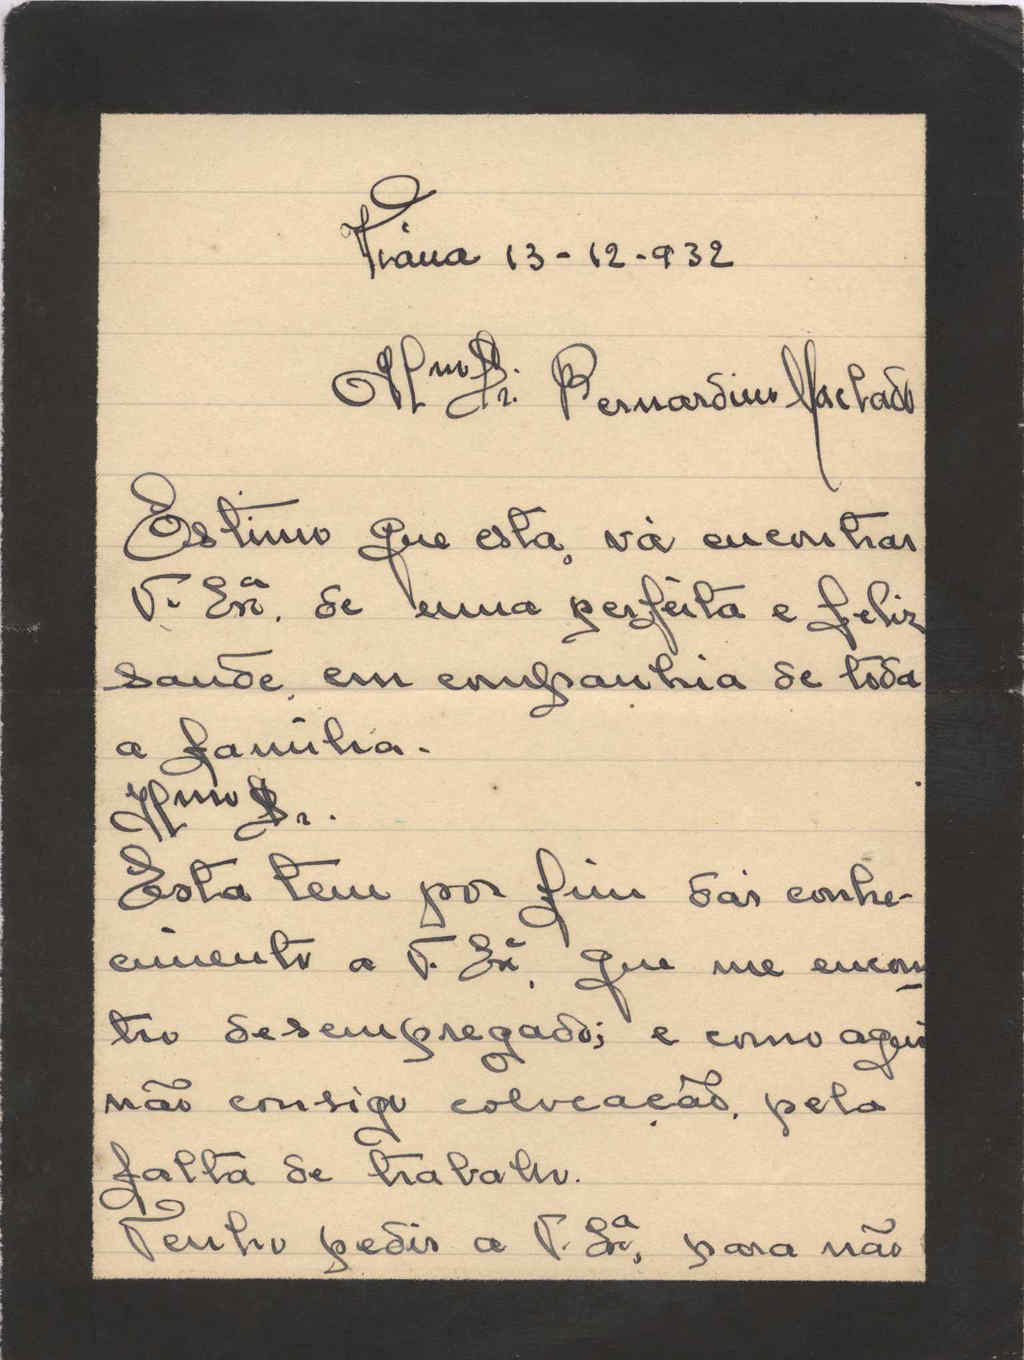 Viana 13-12-932
Illmo Sr. Bernardino Machado
Estimo que esta, vá encontrar
V. Exª. de uma perfeita e feliz
saude, em companhia de toda
a familia.
Illmo Sr.
Esta tem por fim dar conhe-
cimento a V. Exª, que me encon
tro desempregado; e como aqui
não consigo colocação, pela
falta de trabalho.
Venho pedir a V. Exª, para não